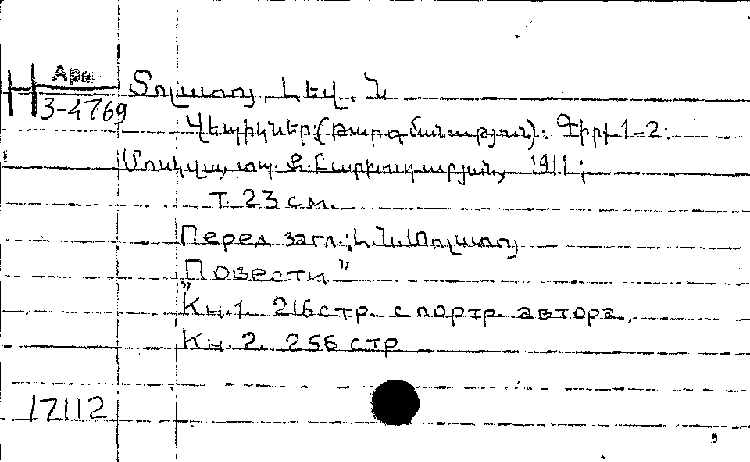 Арм
3-4769
Տոլստոյ Լեվ. Ն
Վեպիկներ: (Թարգմանություն): Գիրք 1-2:
Մոսկվա, տպ. 1911;
т. 23 см.
Перед загл.: Լ. Ն. Տոլստոյ
"Повести"
Кн. 1. 216 стр. с портр. автора.
Кн. 2. 256 стр
17112